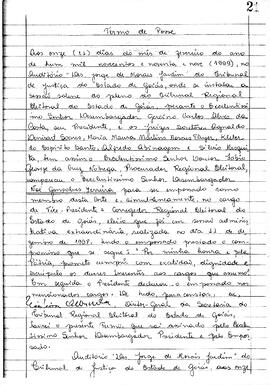 2
Termo de Posse
Aos onze (11) dias do mês de fevereiro do ano
de hum mil novecentos e noventa e nove (1999), no
Auditório "Des. Jorge de Morais Jardim" do Tribunal
de Justiça do Estado de Goiás, onde se instalou a
sessão solene do pleno do Tribunal Regional
Eleitoral do Estado de Goiás, perante o Excelentíssimo
Senhor Desembargador Gercino Carlos Alves da
Costa, seu Presidente, e os Juízes Doutores
do Espírito Santo, Alfredo Abinagem e
bem assim o Excelentíssimo Senhor Doutor
George da Cruz Nóbrega, Procurador Regional Eleitoral,
compareceu o Excelentíssimo Senhor Desembargador
Noé Gonsalves Ferreira para ser empossado como
membro desta Corte e, simultaneamente, no cargo
de Vice-Presidente e Corregedor Regional Eleitoral do
Estado de Goiás, eleito que foi em sessão admi
nistrativa extraordinária, realizada no dia 11 de
1999, tendo o empossado prestado o compro
misso que se segue: "Por minha honra e pela
Pátria, prometo cumprir com exatidão, dignidade e
escrúpulo os deveres inerentes aos cargos que assumo".
Em seguida o Presidente declarou-o empossado nos
mencionados cargos. Do que, para constar, eu
Diretor-Geral da Secretaria do
Tribunal Regional Eleitoral do Estado de Goiás,
lavrei o presente Termo que vai assinado pelo Exce
lentíssimo Senhor Desembargador Presidente e pelo Empos
sado.
Auditório "Des. Jorge de Morais Jardim" do
Tribunal de Justiça do Estado de Goiás, aos onze